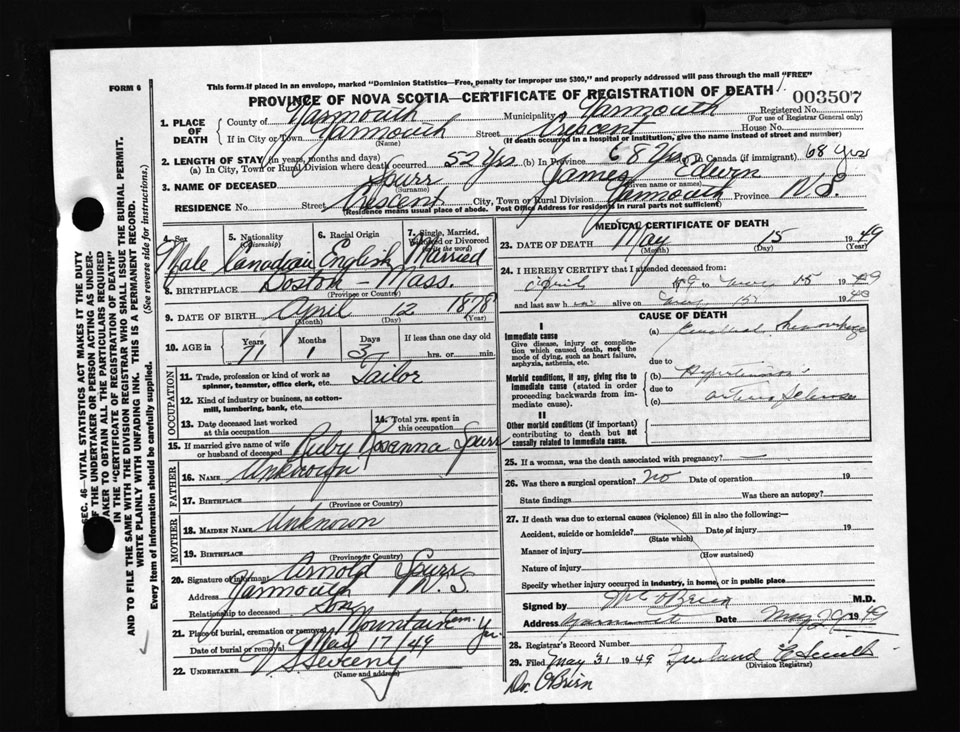 This form if placed in an envelope, marked "Dominion Statistics—Free, penalty for improper use $300," and properly addressed will pass through the mail "FREE"
FORM 6
PROVINCE OF NOVA SCOTIA—CERTIFICATE OF REGISTRATION OF DEATH
003507
Registered No.
(For use of Registrar General only)
1. PLACE OF DEATH
County of Yarmouth Municipality Yarmouth
If in City or Town Yarmouth Street Crescent House No.
(Name) (If death occurred in a hospital or institution, give the name instead of street and number)
2. LENGTH OF STAY (in years, months and days)
(a) In City, Town or Rural Division where death occurred 52 Yrs. (b) In Province 68 Yrs (c) In Canada (if immigrant) 68 Yrs
3. NAME OF DECEASED Spurr James Edwin
(Surname) (Given name or names)
RESIDENCE No. Street Crescent City, Town or Rural Division Yarmouth Province N.S.
(Residence means usual place of abode. Post Office Address for residents in rural parts not sufficient)
4. Sex 5. Nationality (Citizenship) 6. Racial Origin 7. Single, Married, Widowed or Divorced (Write the word)
Male Canadian English Married
8. BIRTHPLACE Boston - Mass.
(Province or Country)
9. DATE OF BIRTH April 12 1878
(Month) (Day) (Year)
10. AGE in Years Months Days If less than one day old
71 1 3 hrs. or min.
OCCUPATION
11. Trade, profession or kind of work as spinner, teamster, office clerk, etc. Tailor
12. Kind of industry or business, as cotton-mill, lumbering, bank, etc.
13. Date deceased last worked at this occupation 14. Total yrs. spent in this occupation
15. If married give name of wife or husband of deceased Ruby Roxanna Spurr
FATHER
16. NAME Unknown
17. BIRTHPLACE
(Province or Country)
MOTHER
18. MAIDEN NAME Unknown
19. BIRTHPLACE
(Province or Country)
20. Signature of informant Arnold Spurr
Address Yarmouth N.S.
Relationship to deceased Son
21. Place of burial, cremation or removal Mountain Cem. Yar.
Date of burial or removal May 17/49
22. UNDERTAKER V. S. Sweeny
(Name and address)
MEDICAL CERTIFICATE OF DEATH
23. DATE OF DEATH May 15 1949
(Month) (Day) (Year)
24. I HEREBY CERTIFY that I attended deceased from:
April 19 to May 15 1949
and last saw him alive on May 15 1949
CAUSE OF DEATH
I
Immediate cause
Give disease, injury or complication which caused death, not the mode of dying, such as heart failure, asphyxia, asthenia, etc.
(a) Cerebral Hemorrhage
due to
Morbid conditions, if any, giving rise to immediate cause (stated in order proceeding backwards from immediate cause).
(b) Hypertension
due to
(c) Arterio Sclerosis
II
Other morbid conditions (if important) contributing to death but not causally related to immediate cause.
25. If a woman, was the death associated with pregnancy? —
26. Was there a surgical operation? no Date of operation 19
State findings Was there an autopsy?
27. If death was due to external causes (violence) fill in also the following:—
Accident, suicide or homicide? Date of injury 19
(State which)
Manner of injury
(How sustained)
Nature of injury
Specify whether injury occurred in industry, in home, or in public place
Signed by O'Brien M.D.
Address Yarmouth Date May 29 1949
28. Registrar's Record Number
29. Filed May 31 1949 Freeland E Smith
(Division Registrar)
Dr. O'Brien
SEC. 46—VITAL STATISTICS ACT MAKES IT THE DUTY
OF THE UNDERTAKER OR PERSON ACTING AS UNDER-
TAKER TO OBTAIN ALL THE PARTICULARS REQUIRED
IN THE "CERTIFICATE OF REGISTRATION OF DEATH"
AND TO FILE THE SAME WITH THE DIVISION REGISTRAR WHO SHALL ISSUE THE BURIAL PERMIT.
WRITE PLAINLY WITH UNFADING INK. THIS IS A PERMANENT RECORD.
Every item of information should be carefully supplied. (See reverse side for instructions.)